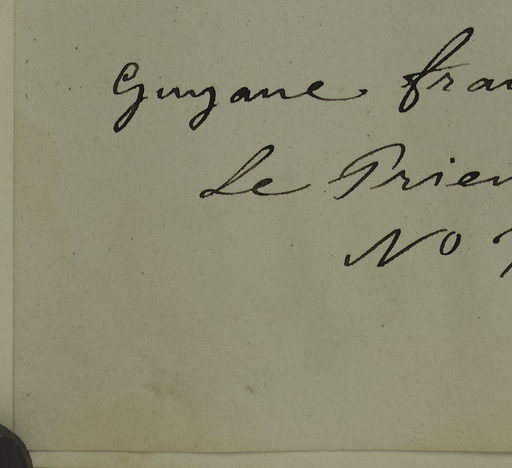 Guyane fra
Le Prieu
No